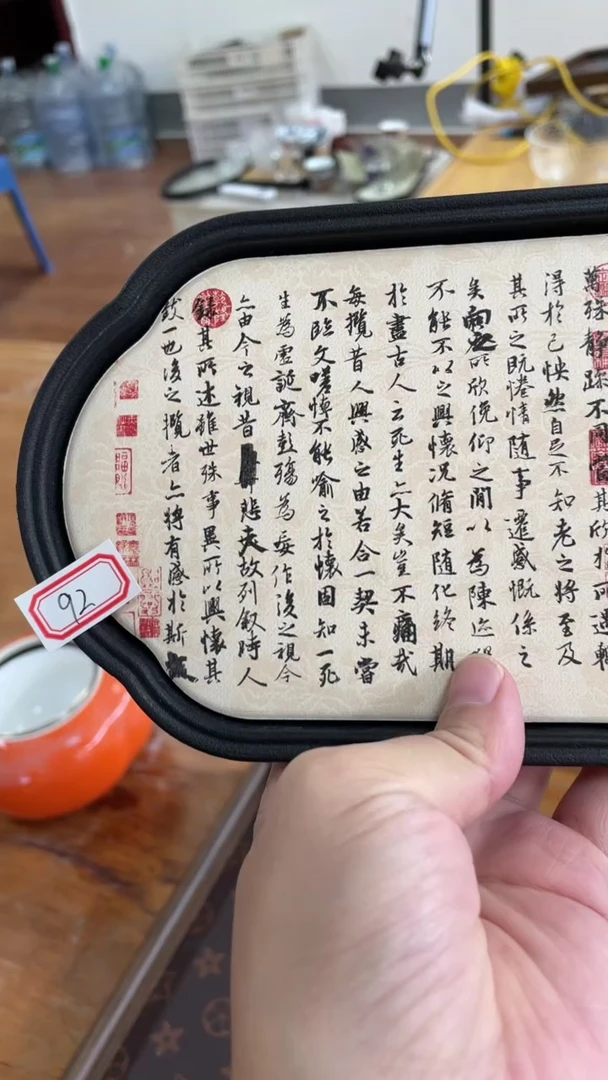 萬殊靜躁不同當其欣於所遇
得於己怏然自足不知老之將至及
其所之既惓情隨事遷感慨係之
矣向之所欣俛仰之閒以為陳迹
不能不以之興懷況脩短隨化終期
於盡古人云死生亦大矣豈不痛哉
每攬昔人興感之由若合一契未嘗
不臨文嗟悼不能喻之於懷固知一死
生為虛誕齊彭殤為妄作後之視今
亦由今之視昔悲夫故列敘時人
錄其所述雖世殊事異所以興懷其
致一也後之攬者亦將有感於斯文
92